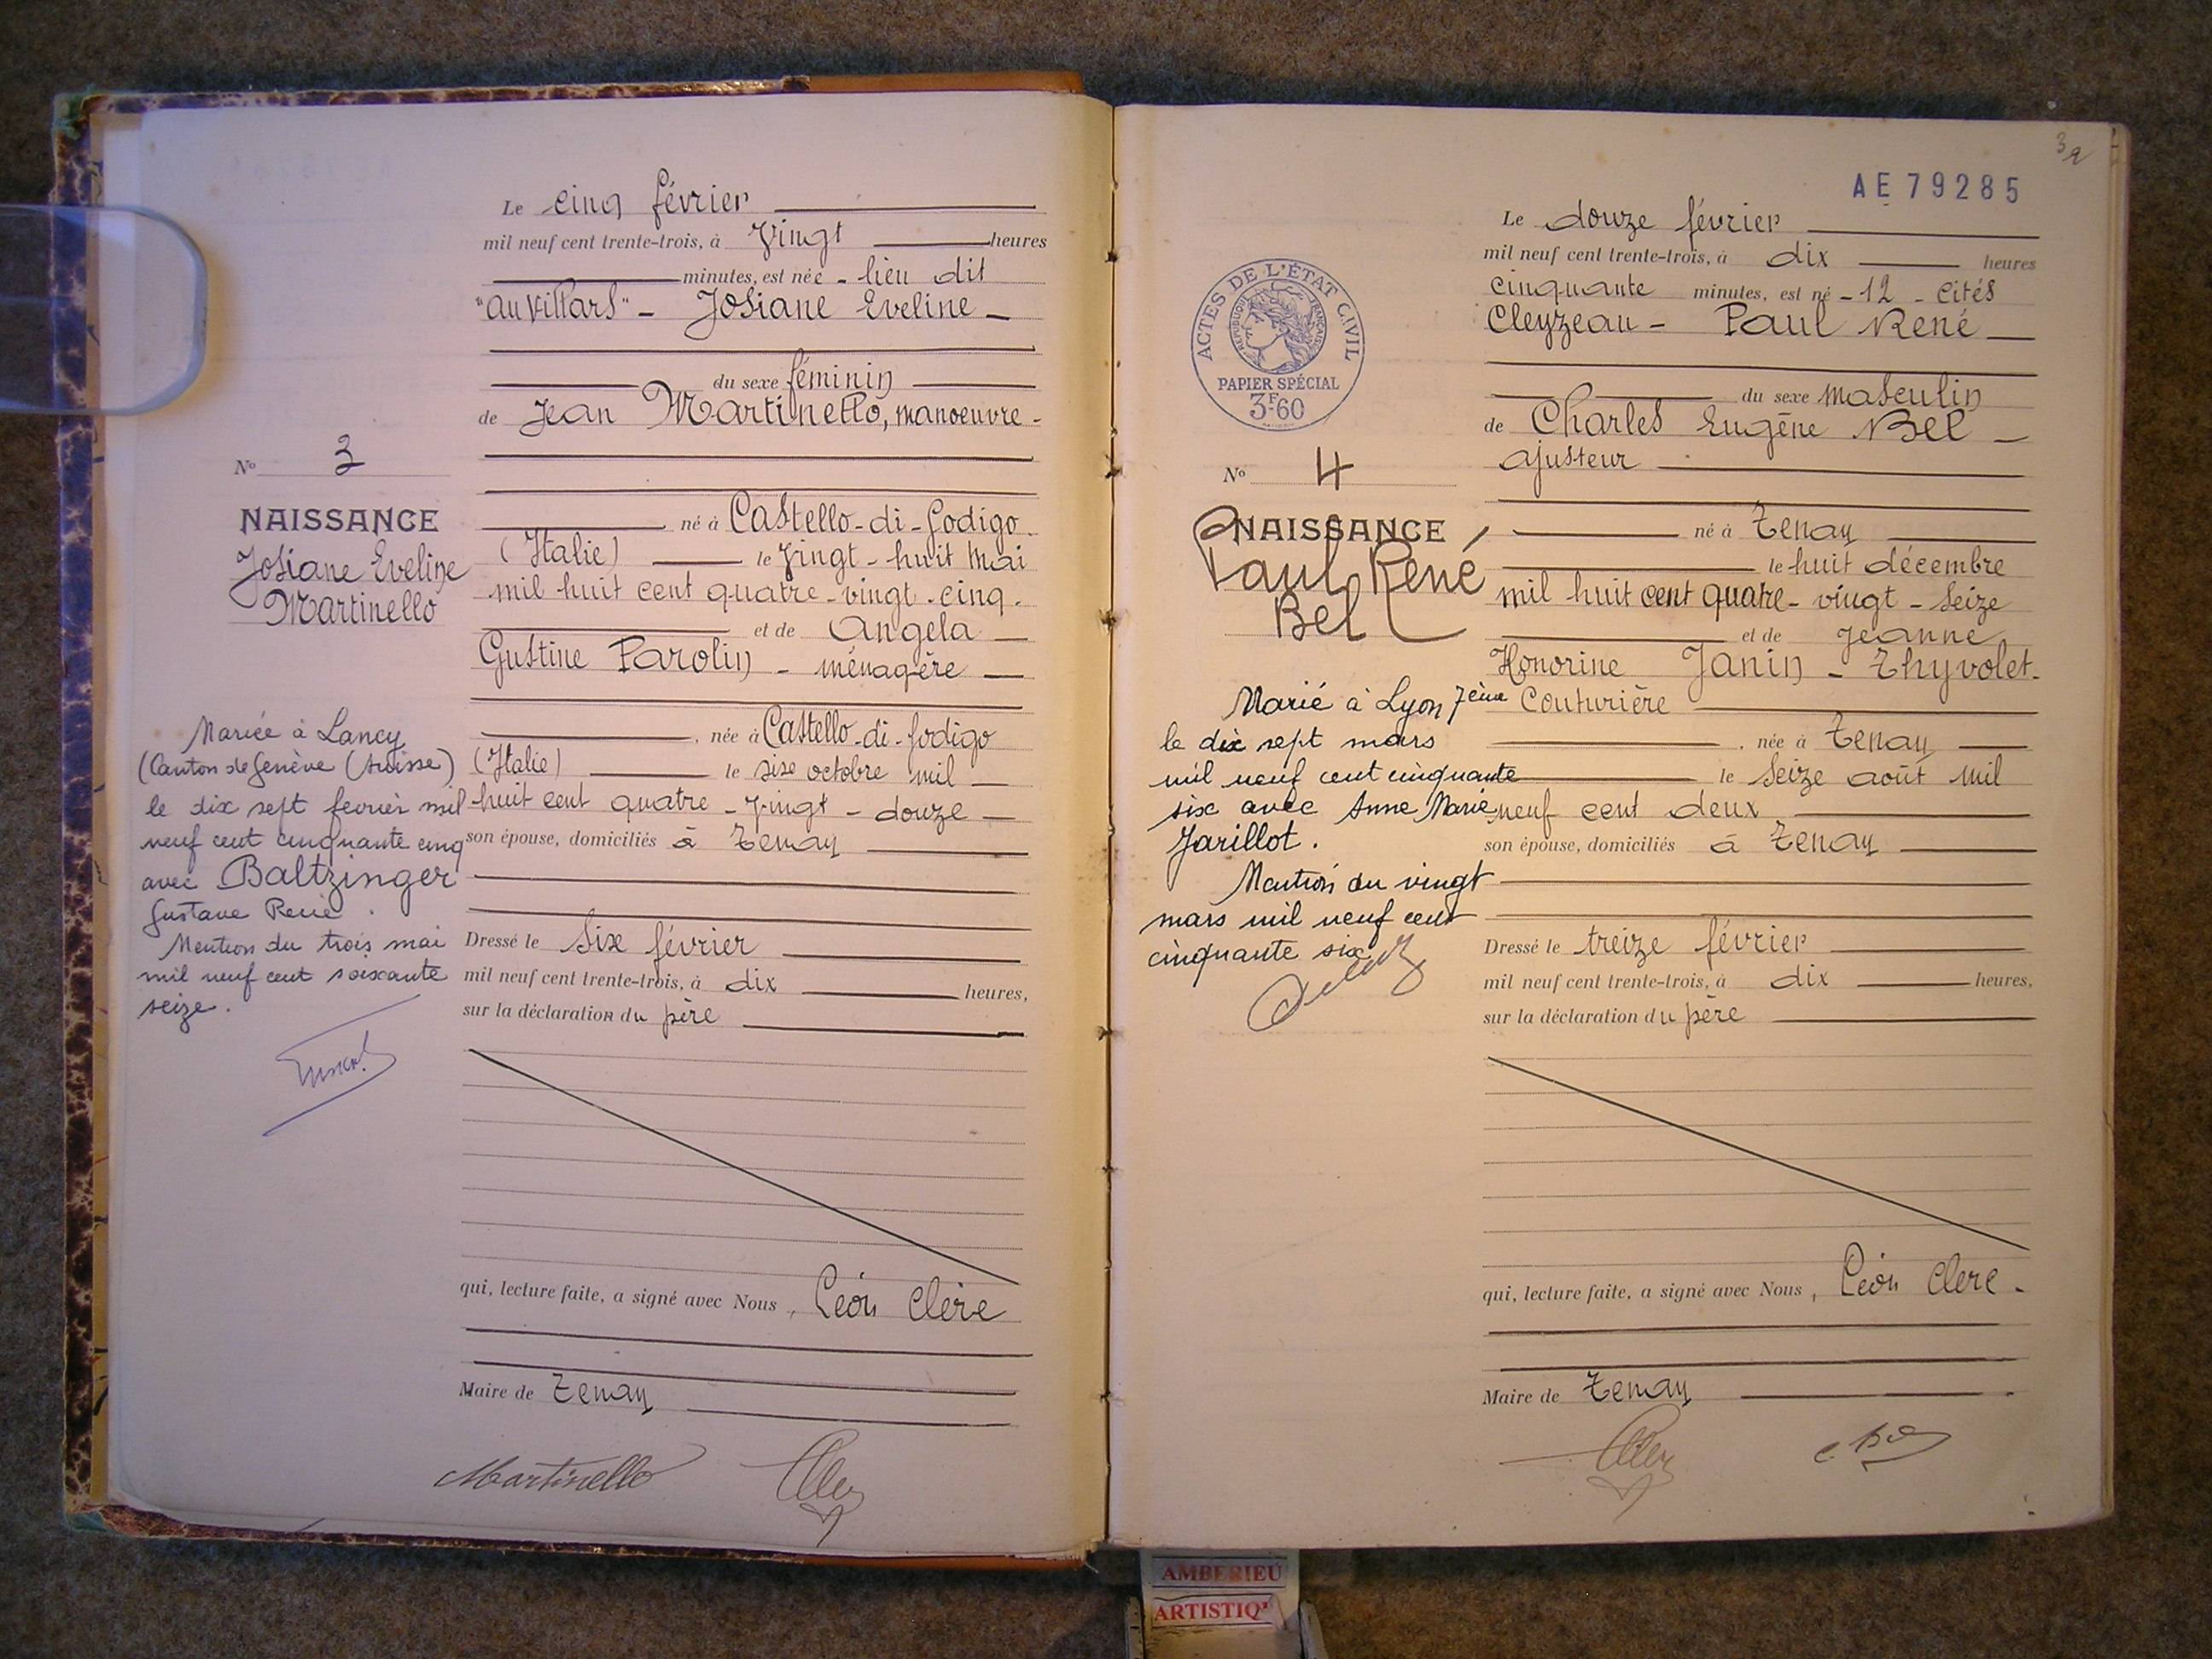 Le cinq février
mil neuf cent trente-trois, à Vingt heures
minutes, est née - lieu dit
"au Villars" - Josiane Eveline -
du sexe féminin
de Jean Martinello, manoeuvre -
né à Castello-di-Godigo
(Italie) le Vingt-huit Mai
mil huit cent quatre-vingt-cinq.
et de Angela
Gustine Parolin - ménagère
née à Castello-di-Godigo
(Italie) le size octobre mil
huit cent quatre-vingt-douze
son épouse, domiciliés à Tenay
Dressé le Six février
mil neuf cent trente-trois, à dix heures,
sur la déclaration du père
qui, lecture faite, a signé avec Nous, Léon Clerc
Maire de Tenay
Martinello
No 3
NAISSANCE
Josiane Eveline
Martinello
Mariée à Lancy
(Canton de Genève (Suisse)
le dix sept février mil
neuf cent cinquante cinq
avec Baltzinger
Gustave René.
Mention du trois mai
mil neuf cent soixante
seize.
AE 79285
Le douze février
mil neuf cent trente-trois, à dix heures
cinquante minutes, est né - 12 - Cités
Cleyzeau - Paul René
du sexe masculin
de Charles Eugène Bel -
ajusteur
né à Tenay
le huit décembre
mil huit cent quatre-vingt-seize
et de Jeanne
Honorine Janin-Thyvolet -
Couturière
née à Tenay
le seize août mil
neuf cent deux
son épouse, domiciliés à Tenay
Dressé le treize février
mil neuf cent trente-trois, à dix heures,
sur la déclaration du père
qui, lecture faite, a signé avec Nous, Léon Clerc -
Maire de Tenay
ACTES DE L'ÉTAT CIVIL
RÉPUBLIQUE FRANÇAISE
PAPIER SPÉCIAL
3F60
No 4
NAISSANCE
Paul René
Bel
Marié à Lyon 7ème
le dix sept mars
mil neuf cent cinquante
six avec Anne Marie
Jarillot.
Mention du vingt
mars mil neuf cent
cinquante six
AMBERIEU
ARTISTIQ